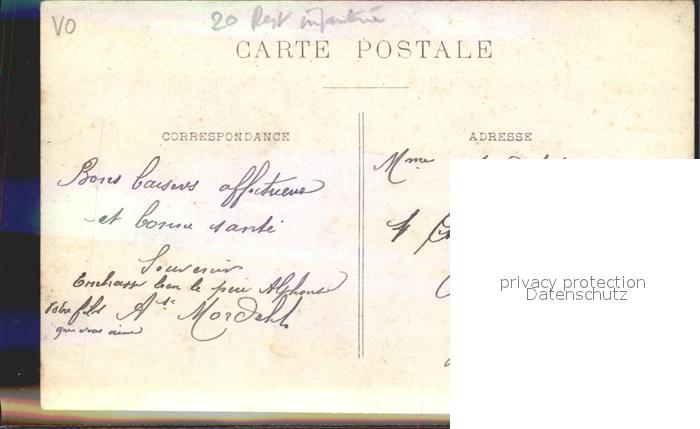 VO
20 Regt infanterie
CARTE POSTALE
CORRESPONDANCE
ADRESSE
Mme
Bons baisers affectueux
et bonne santé
Souvenir
Embrasse bien le père Alphonse
Votre fils Ate Mordehl
que vous aime
privacy protection
Datenschutz